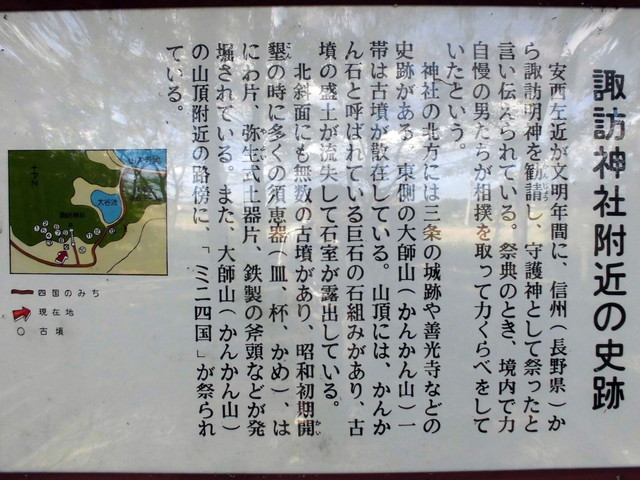 諏訪神社附近の史跡
安西左近が文明年間に、信州(長野県)か
ら諏訪明神を勧請し、守護神として祭ったと
言い伝えられている。祭典のとき、境内で力
自慢の男たちが相撲を取って力くらべをして
いたという。
神社の北方には三条の城跡や善光寺などの
史跡がある。東側の大師山(かんかん山)一
帯は古墳が散在している。山頂には、かんか
ん石と呼ばれている巨石の石組みがあり、古
墳の盛土が流失して石室が露出している。
北斜面にも無数の古墳があり、昭和初期開
墾の時に多くの須恵器(皿、杯、かめ)、は
にわ片、弥生式土器片、鉄製の斧頭などが発
掘されている。また、大師山(かんかん山)
の山頂附近の路傍に、「ミニ四国」が祭られ
ている。
大谷池
四国のみち
現在地
古墳